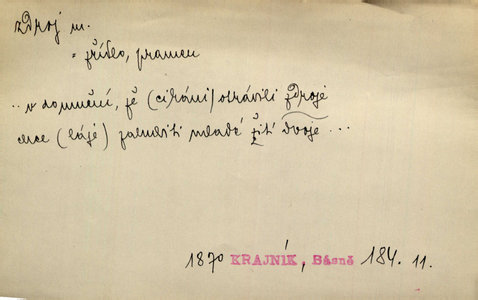 zdroj m.
= zřídlo, pramen
.. v domnění, že (cikáni) otrávili zdroje
chce (lájé) zahubiti mladé žití dvoje ...
1870 KRAJNÍK, Básně 184. 11.